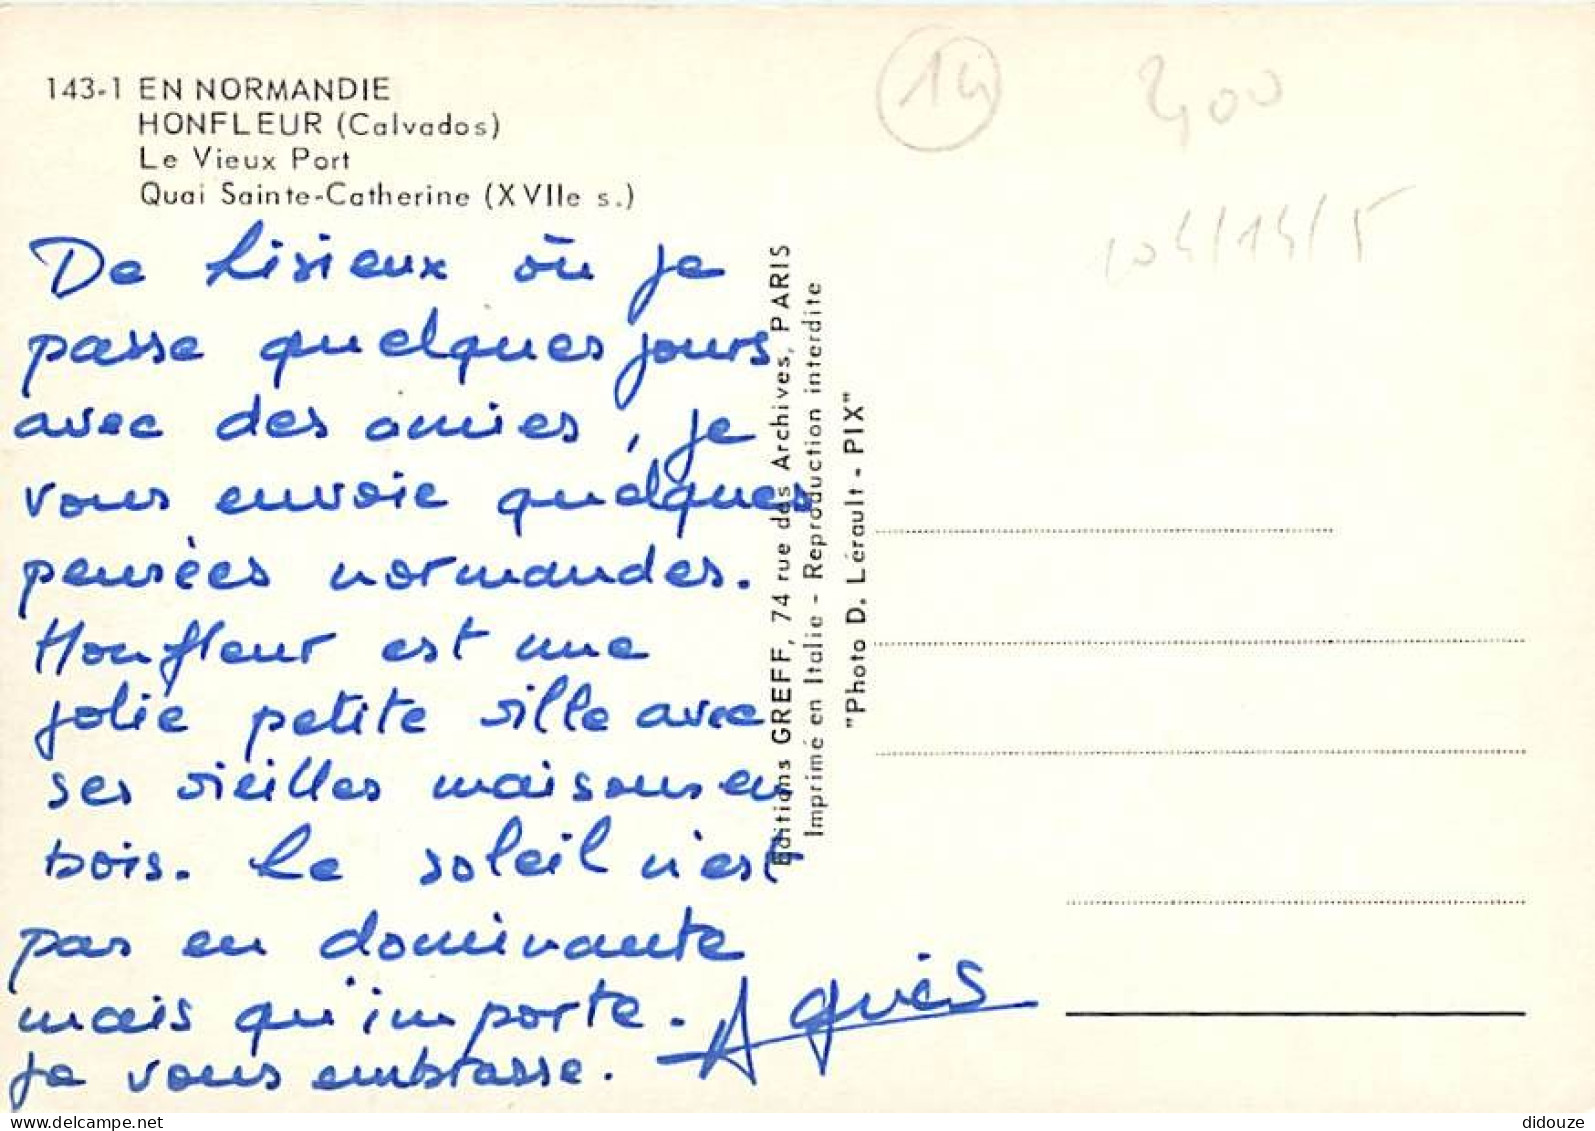 143-1 EN NORMANDIE
HONFLEUR (Calvados)
Le Vieux Port
Quai Sainte-Catherine (XVIIe s.)
De Lisieux où je
passe quelques jours
avec des amies, je
vous envoie quelques
pensées normandes.
Honfleur est une
jolie petite ville avec
ses vieilles maisons en
bois. Le soleil n'est
pas en dominante
mais qu'importe.
Je vous embrasse.
Agnès
Editions GREFF, 74 rue des Archives, PARIS
Imprimé en Italie - Reproduction interdite
"Photo D. Lérault - PIX"
14
delcampe.net
didouze